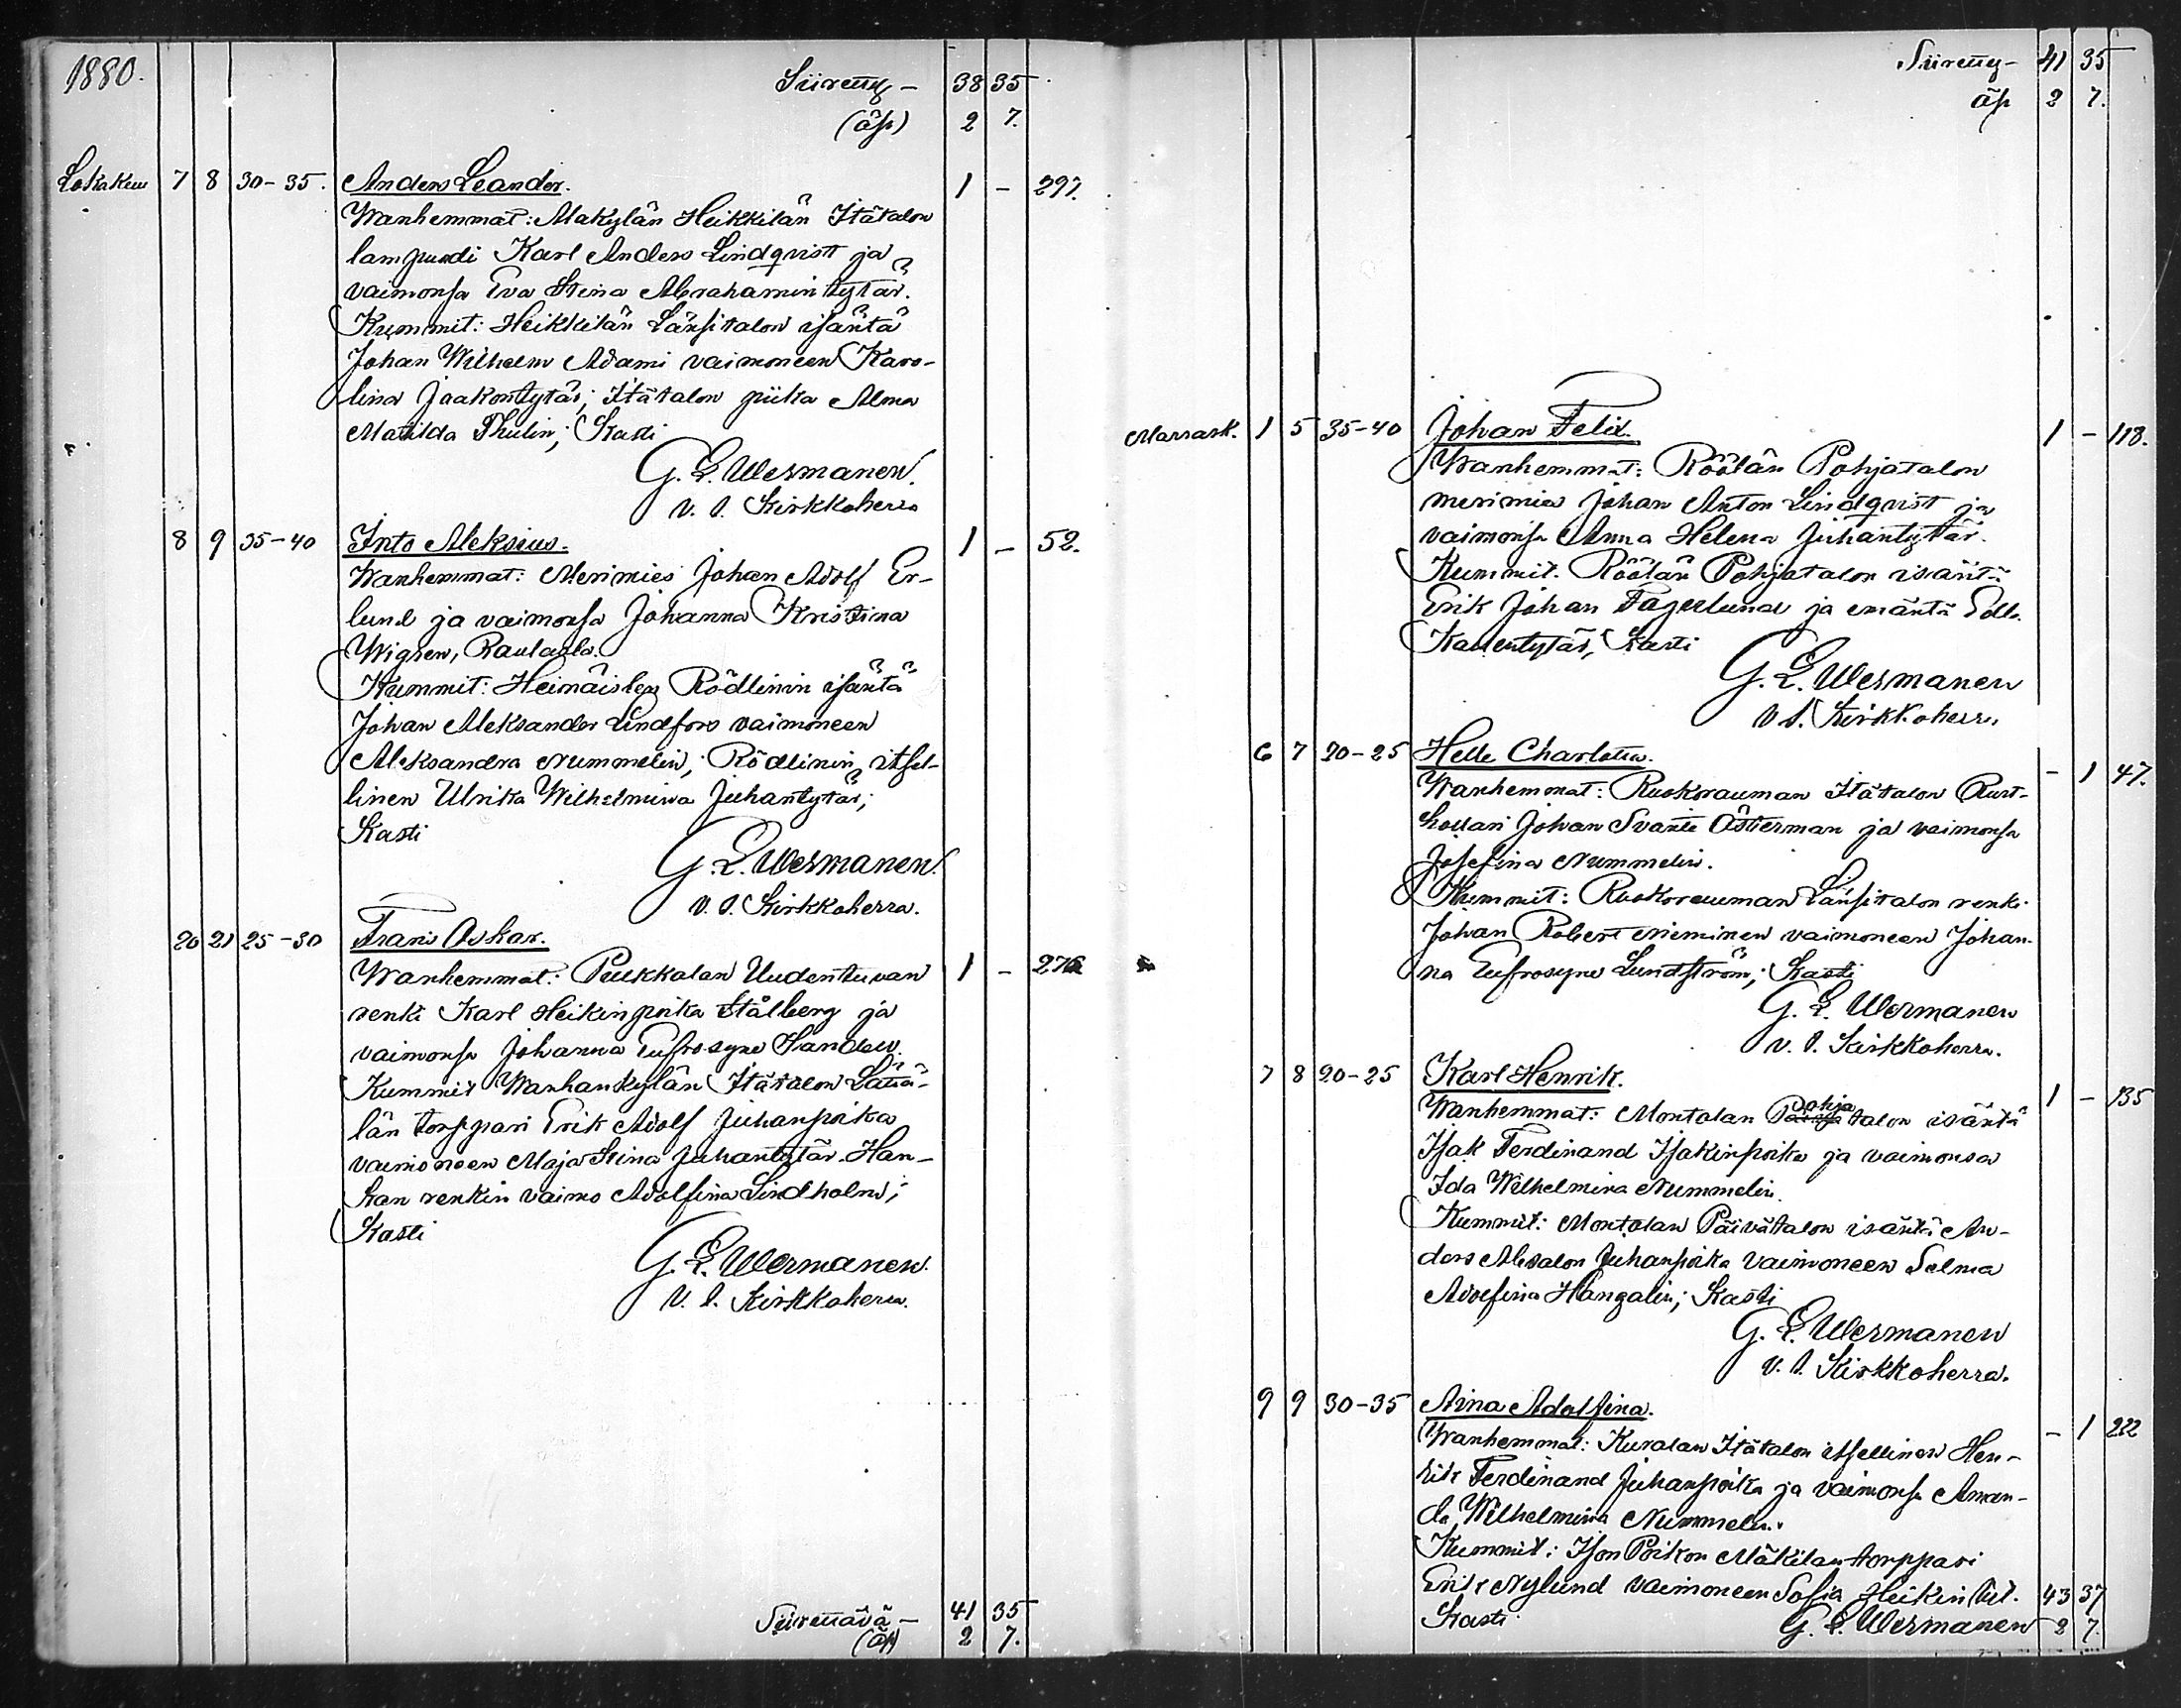 1880.
Siirretty - 38 35
(äp) 2 7.
Lokakuu 7 8 30-35. Anders Leander. 1 - 297.
Wanhemmat: Makylän Heikkilän Itätalon
lampuodi Karl Anders Lindqvist ja
vaimonsa Eva Stina Abrahamintytär.
Kummit: Heikkilän Länsitalon isäntä
Johan Wilhelm Adami vaimoneen Karo-
lina Jaakontytär; Itätalon piika Alma
Matilda Thulin; Kasti
G. E. Wermanen.
v. t. Kirkkoherra
8 9 35-40 Into Aleksius. 1 - 52.
Wanhemmat: Merimies Johan Adolf Er-
lund ja vaimonsa Johanna Kristina
Wigren, Raulaula.
Kummit: Heinäisten Rödlinin isäntä
Johan Aleksander Lindfors vaimoneen
Aleksandra Nummelin; Rödlinin itsel-
linen Ulrika Wilhelmina Juhantytär;
Kasti
G. E. Wermanen.
v. t. Kirkkoherra.
20 21 25-30 Frans Oskar. 1 - 276
Wanhemmat: Pukkalan Uudentuvan
renki Karl Heikinpoika Stålberg ja
vaimonsa Johanna Eufrosyne Sandell.
Kummit Wanhankylän Itätalon
län torppari Erik Adolf Juhanpoika
vaimoneen Maja Stina Juhantytär. Han-
kan renkin vaimo Adolfina Lindholm;
Kasti
G. E. Wermanen.
v. t. Kirkkoherra.
Siirrettävä - 41 35
(äp) 2 7.
Siirretty - 41 35
äp 2 7.
Marrask. 1 5 35-40 Johan Felix. 1 - 118.
Wanhemmat: Röölän Pohjatalon
merimies Johan Anton Lindqvist ja
vaimonsa Anna Helena Juhantytär.
Kummit. Röölän Pohjatalon isäntä
Erik Johan Fagerlund ja emäntä
Kallentytär, Kasti
G. E. Wermanen
v. t. Kirkkoherra.
6 7 20-25 Helle Charlotta. - 1 47.
Wanhemmat: Ruokorauman Itätalon
Johan Svante Österman ja vaimonsa
Josefina Nummelin.
Kummit: Ruokorauman Länsitalon renki
Johan Robert Nieminen vaimoneen Johan-
na Eufrosyne Lundström; Kasti
G. E. Wermanen
v. t. Kirkkoherra.
7 8 20-25 Karl Henrik. 1 - 135
Wanhemmat: Montolan Pohjatalon isäntä
Isak Ferdinand Isakinpoika ja vaimonsa
Ida Wilhelmina Nummelin.
Kummit: Montolan Päivätalon isäntä An-
ders Absalon Juhanpoika vaimoneen Selma
Adolfina Hangalin; Kasti
G. E. Wermanen
v. t. Kirkkoherra.
9 9 30-35 Aina Adolfina. - 1 222
Wanhemmat: Kuralan Itätalon itsellinen Hen-
rik Ferdinand Juhanpoika ja vaimonsa Aman-
da Wilhelmina Nummelin.
Kummit: Ison Poikon Mäkilän torppari
Erik Nylund vaimoneen Sofia Heikintyt. 43 37
Kasti G. E. Wermanen 2 7.